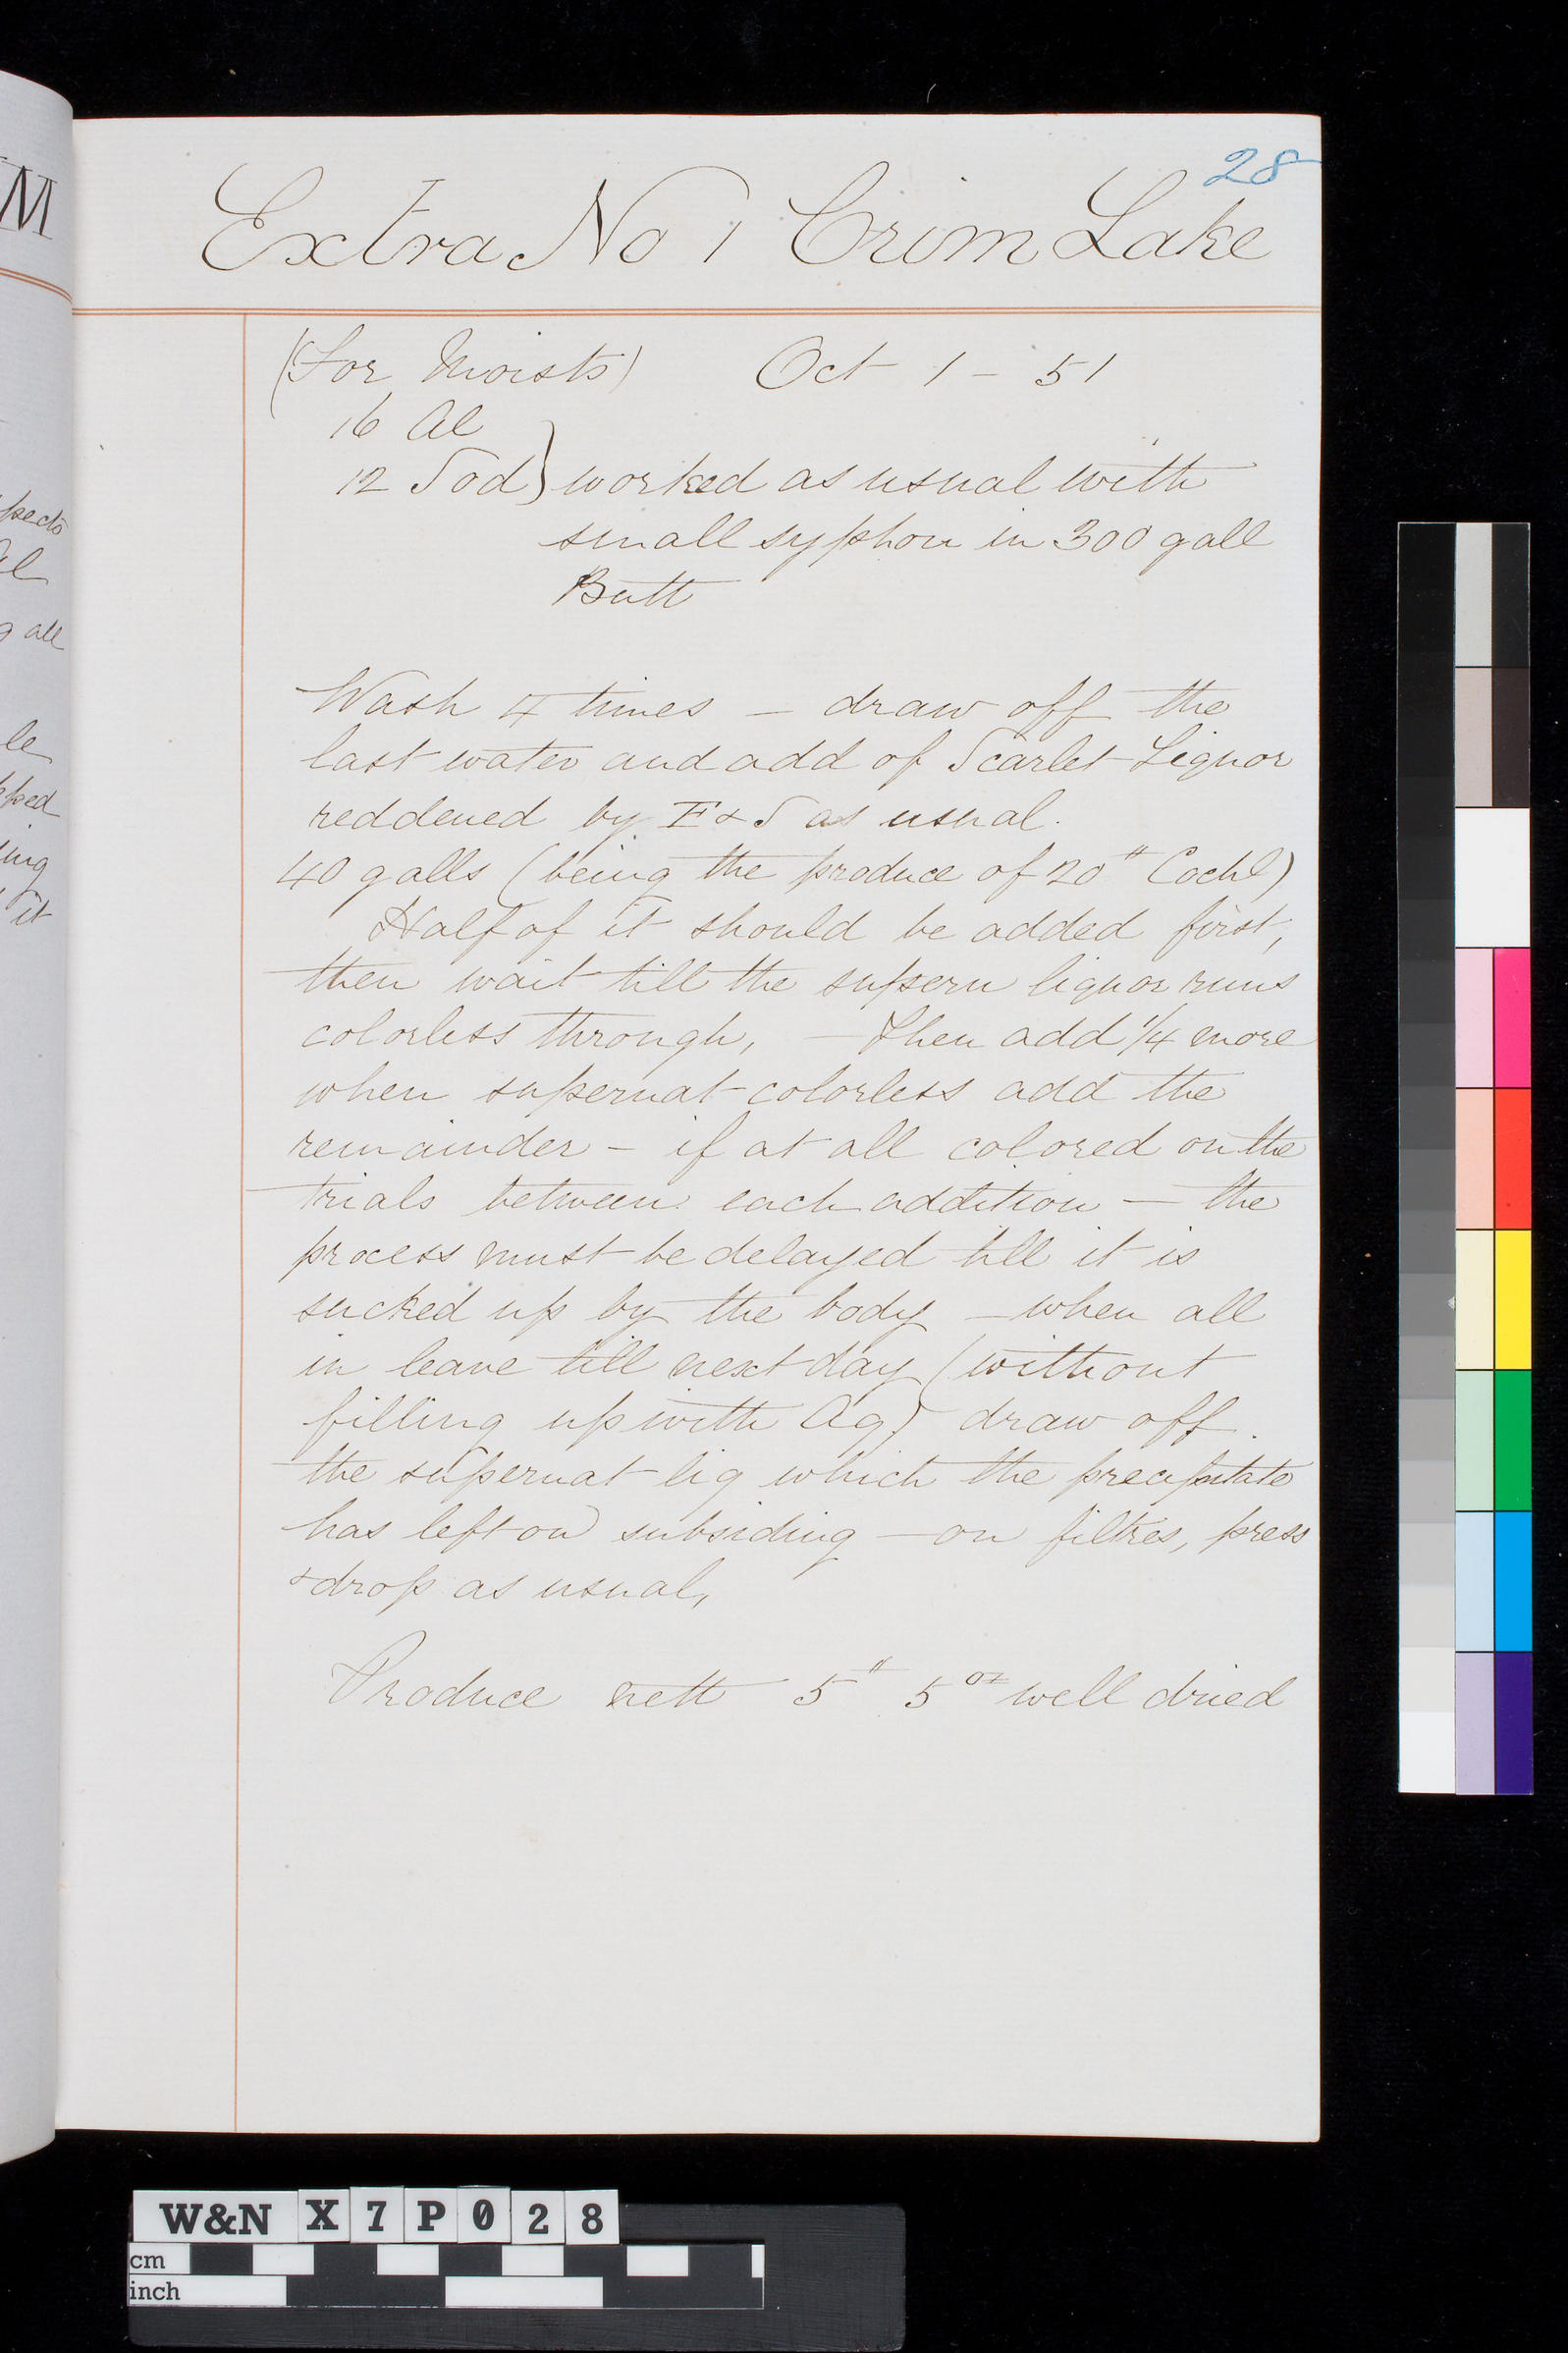 28
Extra No 1 Crim Lake
(For Moists) Oct 1 - 51
16 Al
12 Sod } worked as usual with
small syphon in 300 gall
Butt
Wash 4 times — draw off the
last water and add of Scarlet Liquor
reddened by E & S as usual.
40 galls (being the produce of 20 # Cochl)
Half of it should be added first,
then wait till the supern liquor runs
colorless through, — then add 1/4 more
when supernat colorless add the
remainder - if at all colored on the
trials between each addition — the
process must be delayed till it is
sucked up by the body — when all
in leave till next day (without
filling up with Aq) draw off
the supernat liq which the precipitate
has left on subsiding — on filtres, press
& drop as usual,
Produce nett 5 # 5 oz well dried
M
all
le
ing
it
W&N X7P028
cm
inch